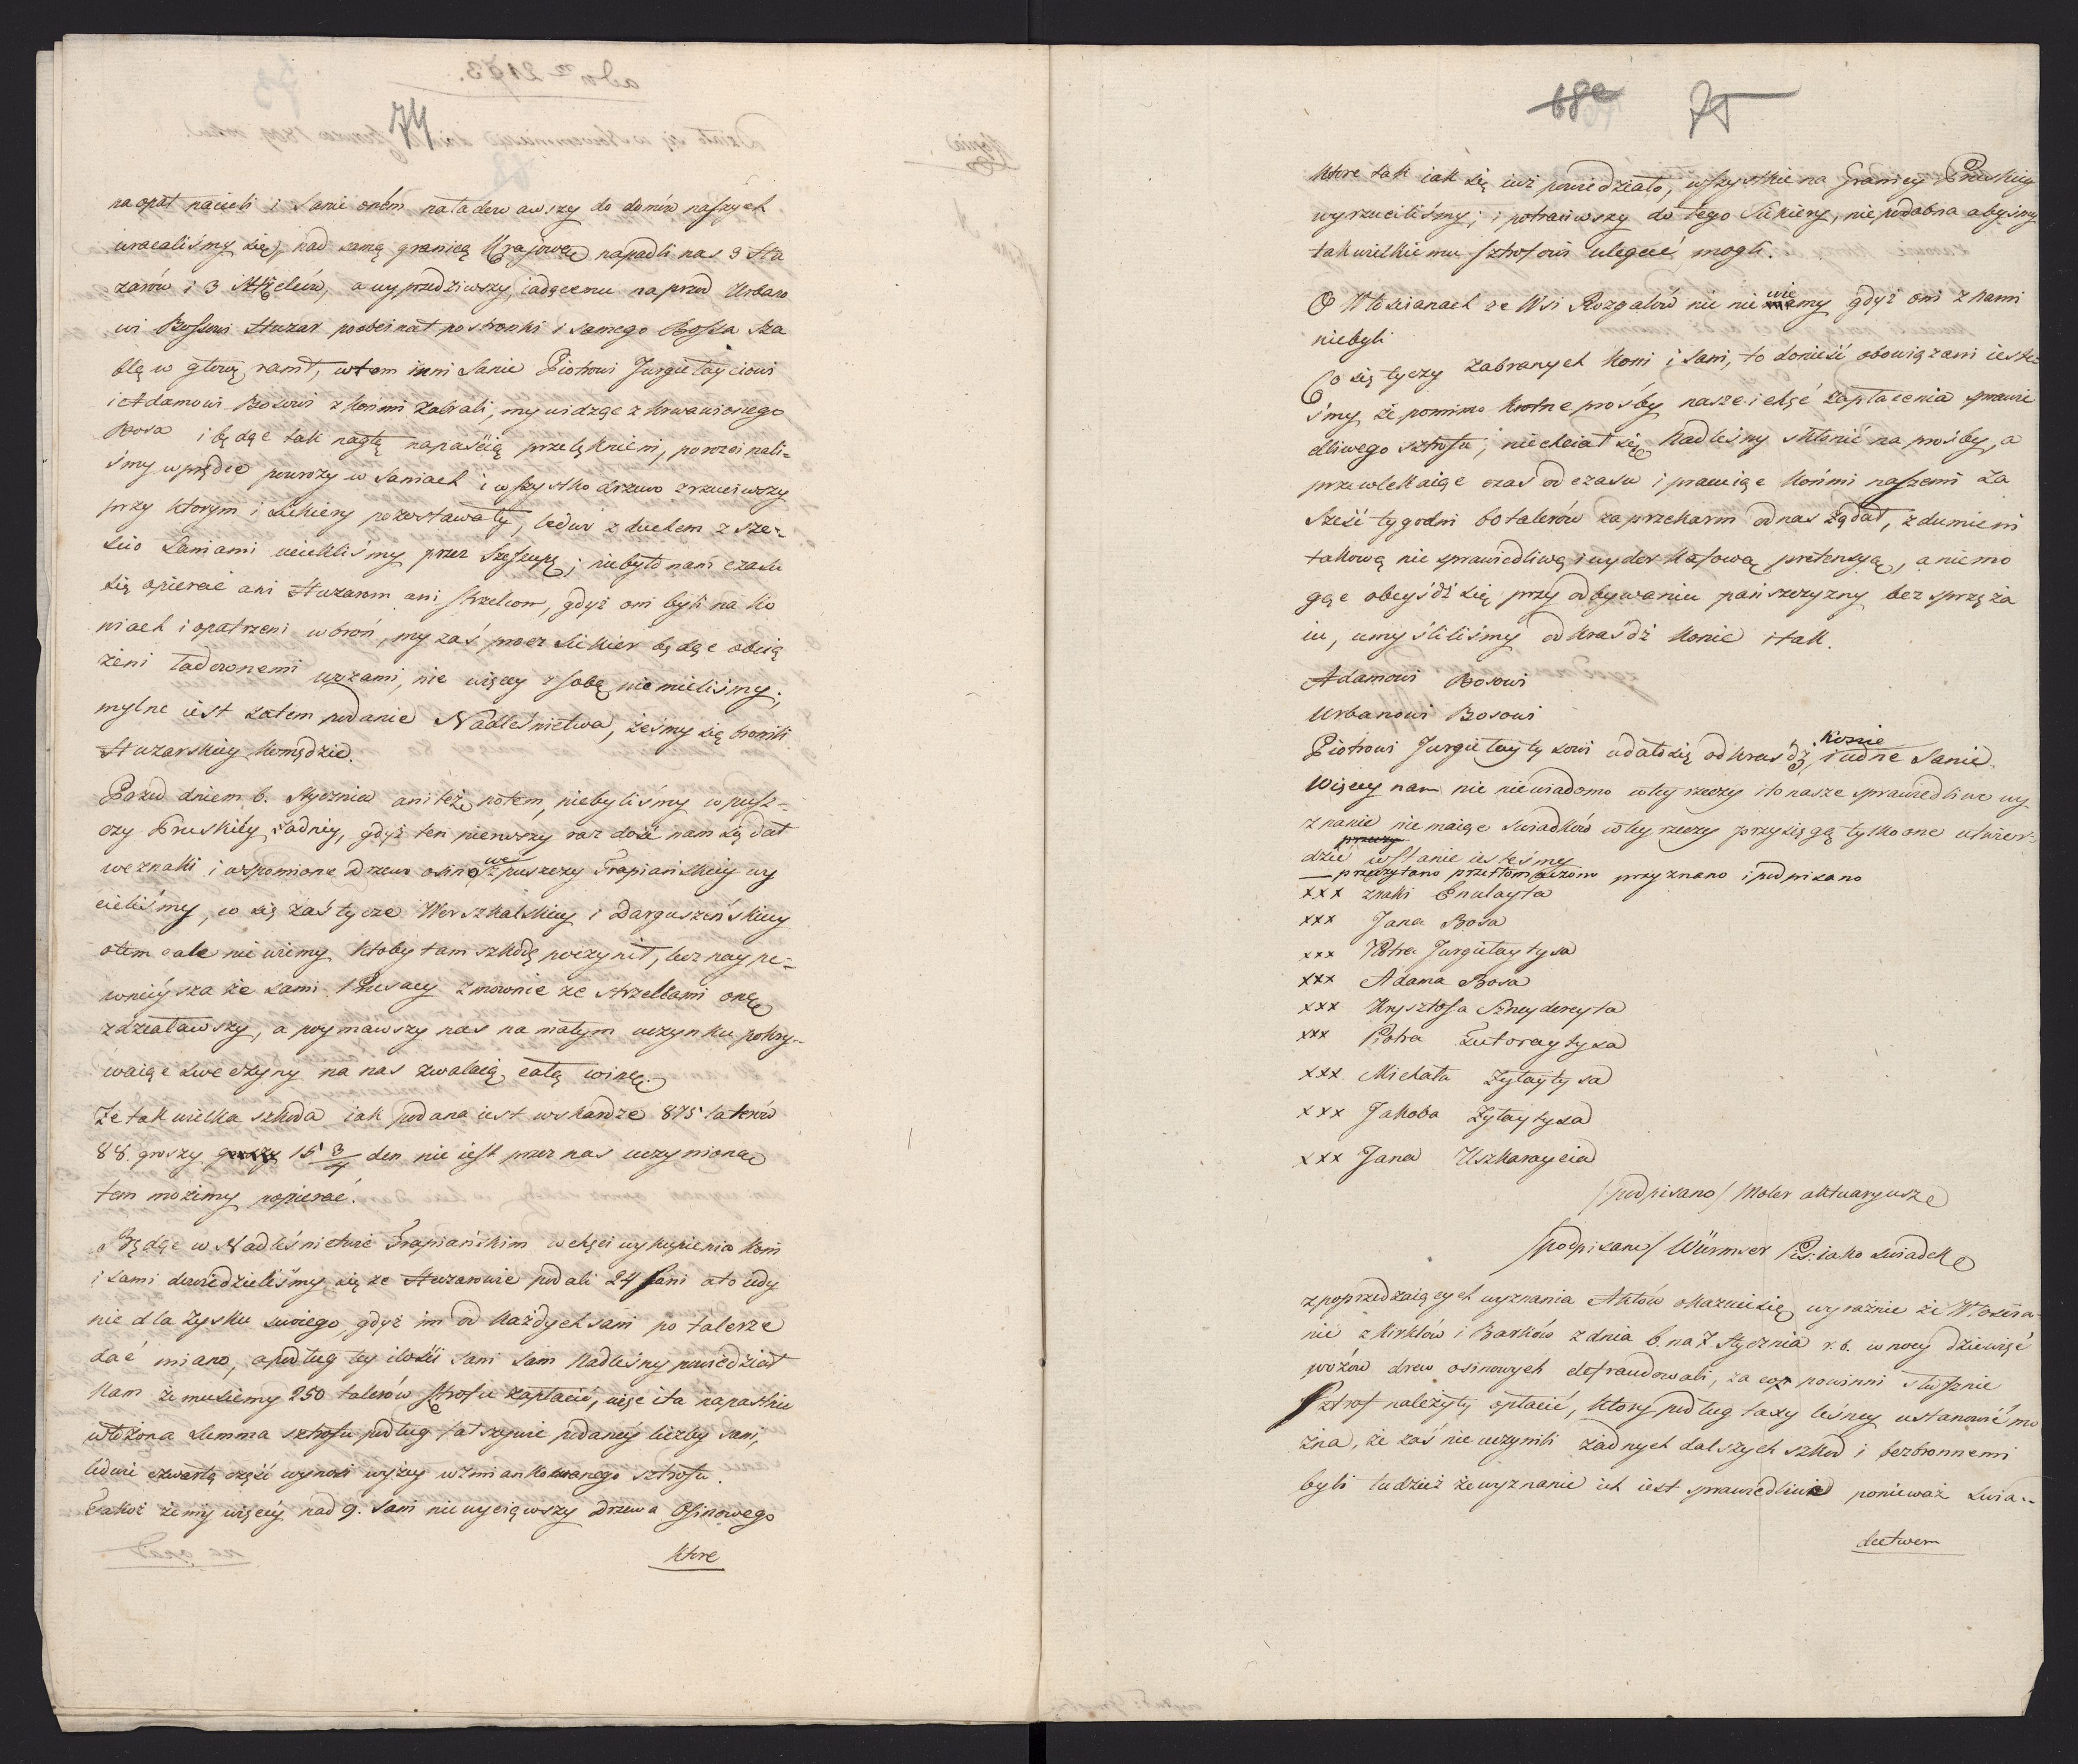 74
na opał nacieli i Sanie oném naładowawszy do domów naszych
wracaliśmy się, nad samą granicą Krajową napadli nas 3 Hu
zarów i 3 Strzelców, a wyprzedziwszy, iadącemu naprzod Urbano
wi Bossowi Huzar poobcinał postronki i samego Bossa sza
blą w głowę ranił, wtem inni Sanie Piotrowi Jurgiełayciowi
i Adamowi Bosowi z końmi zabrali, my widząc zkrwawionego
Bosa i będąc tak nagłą napaścią przelęknieni, porozcinali=
śmy wprędce powrozy w Saniach i wszystko drzewo zrzuciwszy
przy ktorym i Siekiery pozostawały, ledwo z duchem z sze=
ścio Saniami uciekliśmy przez Szeszupę; niebyło nam czasu
się opierać ani Huzarom ani strzelcom, gdyż oni byli na ko
niach i opatrzeni w broń, my zaś procz siekier będąc obcią
żeni ładownemi wozami, nic więcey z sobą nie mieliśmy;
mylne iest zatem podanie Nadleśnictwa, żeśmy się bronili
Huzarskiey komędzie.
Przed dniem 6. Stycznia ani też potem, niebyliśmy w pusz=
czy Pruskiey żadney, gdyż ten pierwszy raz dość nam się dał
we znaki i wspomione drzewo osinowe z puszczy Trapiańskiey wy
cieliśmy, co się zaś tycze Werszkalskiey i Darguszeńskiey
otem cale nie wiemy ktoby tam szkodę poczynił, lecz naype=
wnieysza że sami Prusacy zmownie ze strzelcami onę
zdziaławszy, a poymawszy nas na małym uczynku, pokry=
waiąc swe czyny na nas zwalaią całą winę.
Że tak wielka szkoda iak podana iest w skardze 875 talerów
88. groszy 15 3/4 den nie iest przez nas uczyniona
tem możemy popierać.
Będąc w Nadleśnictwie Trapiańskim w chęci wykupienia koni
i sani dowiedzieliśmy się ze Huzarowie podali 24 sani a to iedy
nie dla Zysku swoiego, gdyż im od każdych sani po talerze
dać miano, a podług tey ilości sani sam Nadleśny powiedział
nam że musiemy 250 talerów sztrofu zapłacić, więc i ta napastnie
włożona Summa sztrofu podług fałszywie podaney liczby sani,
ledwie czwartą część wynosi wyżey wzmiankowanego sztrofu.
Takoż żemy więcey nad 9. sani nie wyciąwszy drzewa Osinowego
ktore
68 75
ktore tak iak się iuż powiedziało, wszystkie na Granicy Pruskiey
wyrzuciliśmy; i potraciwszy do tego Siekiery, nie podobna abyśmy
tak wielkiemu sztrofowi uledz mogli.
O Włościanach ze Wsi Rozgalów nic nie wiemy gdyż oni z nami
niebyli
Co się tyczy zabranych koni i sani, to donieść obowiązani ieste=
śmy, że pomimo krotne prośby nasze i chęć zapłacenia sprawie
dliwego sztrofu, niechciał się Nadleśny skłonić na prośby, a
przewlekaiąc czas od czasu i pracuiąc końmi naszemi za
Sześć tygodni 60 talerów za przekarm od nas żądał, zdumieni
takową niesprawiedliwą i wyderkafową pretensyą, a niemo
gąc obeyśdź się przy odbywaniu pańszczyzny bez sprzęża
iu, umyśliliśmy odkraśdź konie i tak.
Adamowi Bosowi
Urbanowi Bosowi
Piotrowi Jurgiełaytysowi udało się odkraśdź konie i iedne Sanie.
Więcey nam nic niewiadomo w tey rzeczy i to nasze sprawiedliwe wy
znanie nie maiąc swiadków w tey rzeczy przysięgą tylko one utwier=
dzić w stanie iesteśmy
— przeczytano przetłomaczono przyznano i podpisano
xxx znaki Enulayta
xxx Jana Bosa
xxx Piotra Jurgiełaytysa
xxx Adama Bosa
xxx Krysztofa Szneydereyta
xxx Piotra Lutoraytysa
xxx Michała Zytaytysa
xxx Jakoba Zytaytysa
xxx Jana Uszkaraycia
/podpisano/ Moler aktuaryusz
/podpisano/ Würmser Ps: iako swiadek
z poprzedzaiących wyznania Aktów okazuie się wyraźnie że Włościa
nie z Kirklów i Barków z dnia 6. na 7 Stycznia r. b. w nocy dziewięć
wozów drew osinowych defraudowali, za co powinni słusznie
Sztrof należyty opłacić, ktory podług taxy leśney ustanowić mo
żna, że zaś nie uczynili żadnych dalszych szkod i bezbronnemi
byli tudzież że wyznanie ich iest sprawiedliwe ponieważ swia=
dectwem